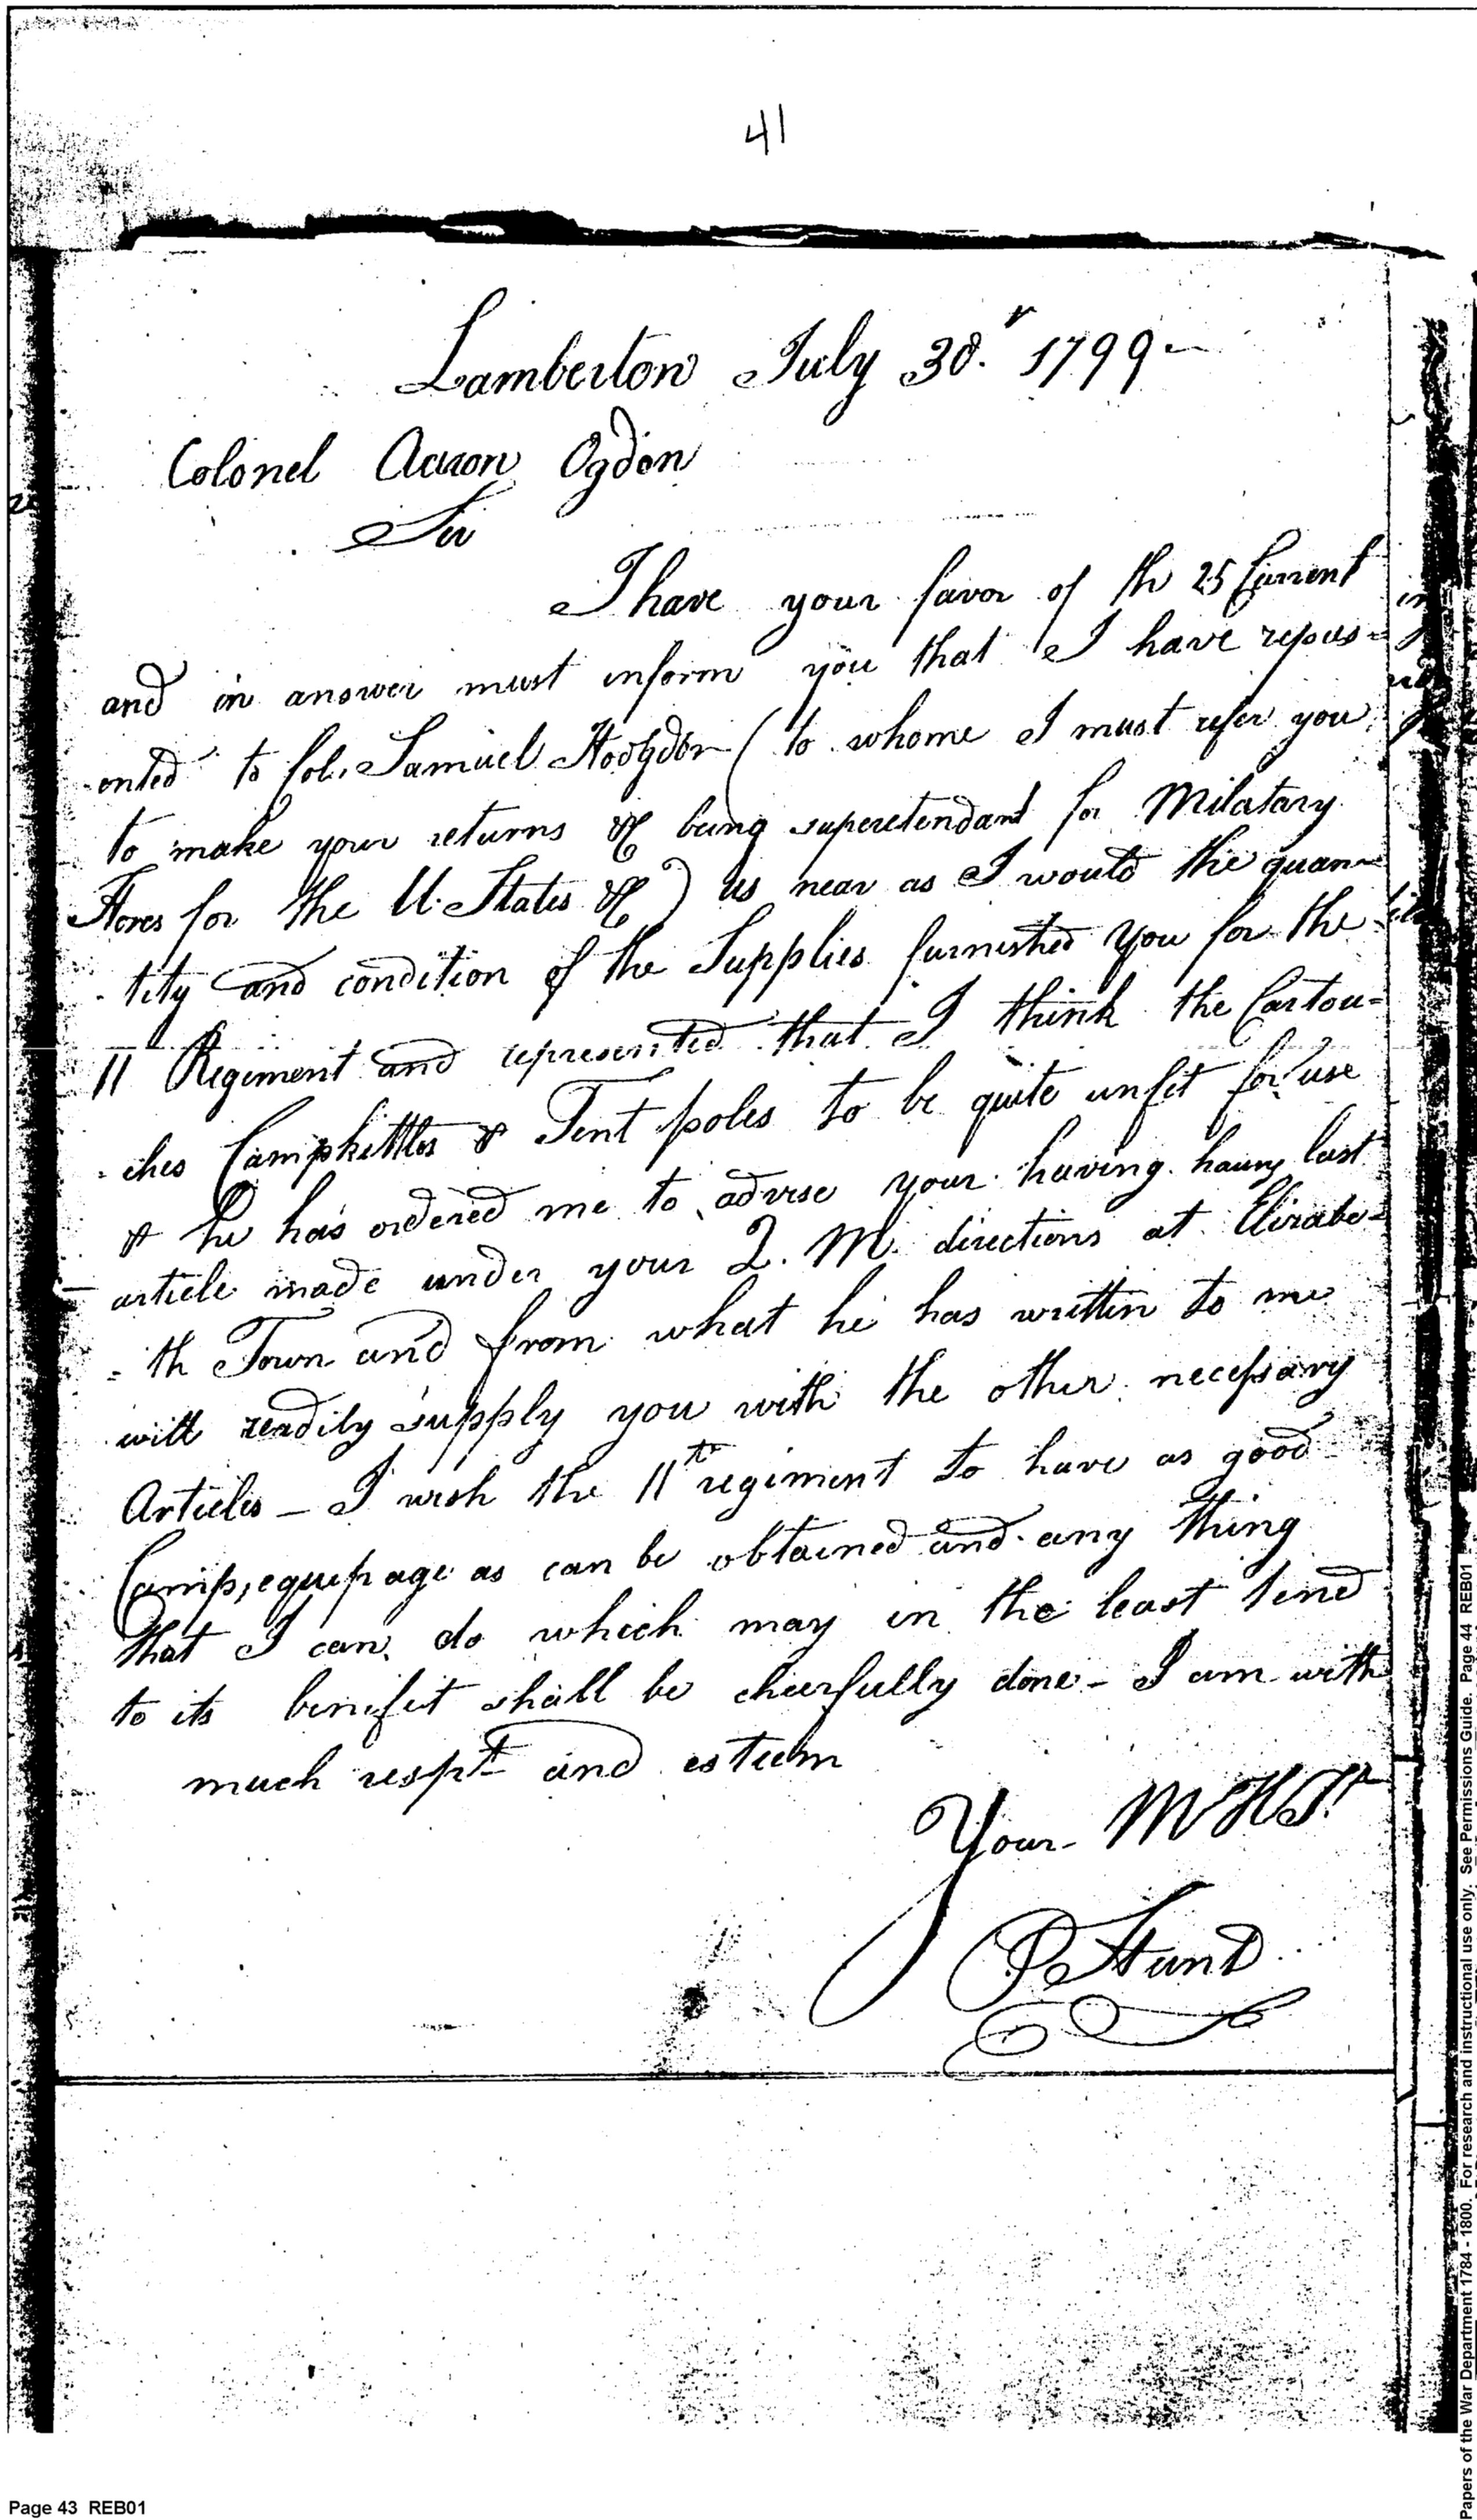 41
Lamberton July 30. 1799-
Colonel Aaron Ogdon
Sir
I have your favor of th 25 Current
and in answer must inform you that I have repres=
ented to Col. Samuel Hodgdon (to whome I must refer you
to make your returns &c being superetendant for Milatary
Stores for the U. States &c) as near as I would the quan-
tity and condition of the Supplies furnished you for the
11 Regiment and represented that I think the Cartou=
ches Campkittles & Tent poles to be quite unfit for use
& he has ordered me to advise your having having last
article made under your Q. M. directions at Elizabe=
=th Town and from what he has written to me
will readily supply you with the other necessary
Articles - I wish the 11th regiment to have as good
Camp, equepage as can be obtained and any thing
that I can do which may in the least tend
to its benifit shall be cheerfully done - I am with
much respt and esteem
Your M H St
P Hunt
Page 43 REB01
Papers of the War Department 1784 - 1800. For research and instructional use only. See Permissions Guide. Page 44 REB01